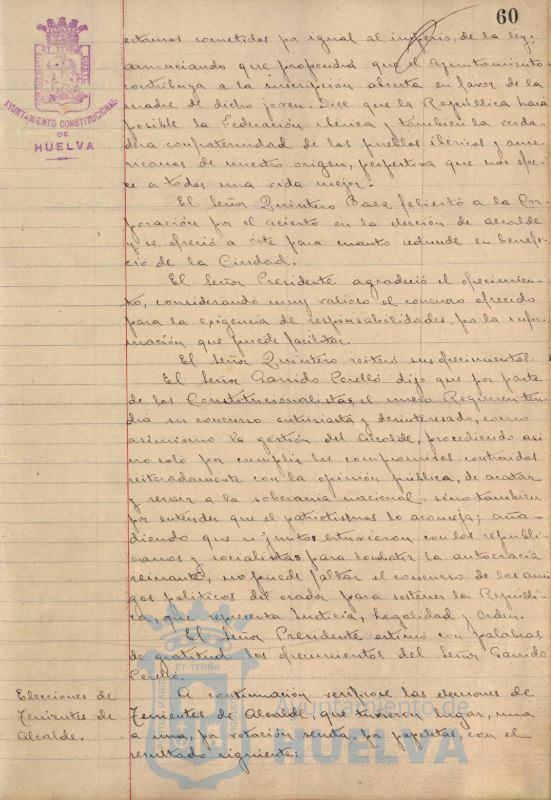 60
AYUNTAMIENTO CONSTITUCIONAL
DE
HUELVA
estamos sometidos por igual al imperio, de la ley;
anunciando que propondrá que el Ayuntamiento
contribuya a la inscripción abierta en favor de la
madre de dicho joven. Dice que la República hará
posible la Federación ibérica y también la verda-
dera confraternidad de los pueblos ibéricos y ame-
ricanos de nuestro origen, perspectiva que nos ofre-
ce a todos una vida mejor.
El Señor Quintero Baez felicitó a la Cor-
poración por el acierto en la elección de alcalde
y se ofreció a éste para cuanto redunde en benefi-
cio de la Ciudad.
El Señor Presidente agradeció el ofrecimien-
to, considerando muy valioso el concurso ofrecido
para la exigencia de responsabilidades, por la infor-
mación que puede facilitar.
El Señor Quintero reiteró sus ofrecimientos.
El Señor Garrido Perelló dijo que por parte
de los Constitucionalistas, el nuevo Regimen ten-
drá su concurso entusiasta y desinteresado, como
asimismo la gestión del Alcalde, procediendo así
no solo por cumplir los compromisos contraidos
reiteradamente con la opinión publica, de acatar
y servir a la soberania nacional, sino tambien
por entender que el patriotismo lo aconseja; aña-
diendo que si juntos estuvieron con los republi-
canos y socialistas para combatir la autocracia
reinante, no puede faltar el concurso de los ami-
gos politicos del orador para sostener la Repúbli-
ca, que representa Justicia, Legalidad y Orden.
El Señor Presidente estimó con palabras
de gratitud los ofrecimientos del Señor Garrido
Perelló.
Elecciones de
Tenientes de
Alcalde.
A continuación verificose las elecciones de
Tenientes de Alcalde, que tuvieron lugar, una
a una, por votación secreta, por papeletas, con el
resultado siguiente:
Ayuntamiento de
HUELVA